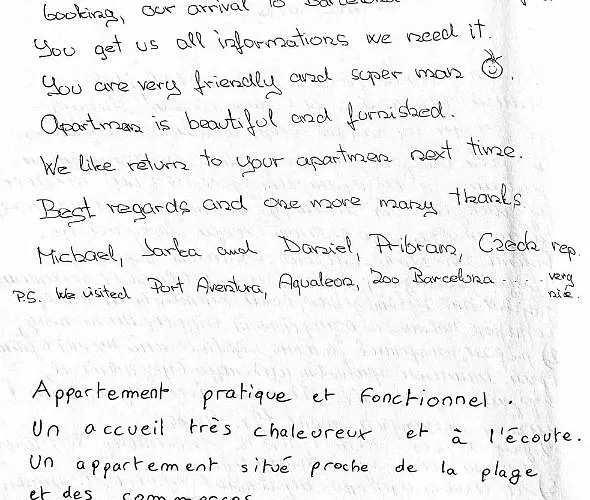 booking, our arrival to Barcelona
You get us all informations we need it.
You are very friendly and super man ☺.
Apartman is beautiful and furnished.
We like return to your apartman next time.
Best regards and one more many thanks
Michael, Jarka and Daniel, Pribram, Czech rep.
P.S. We visited Port Aventura, Aqualeon, Zoo Barcelona .... very nice.
Appartement pratique et fonctionnel.
Un accueil très chaleureux et à l'écoute.
Un appartement situé proche de la plage
et des commerces